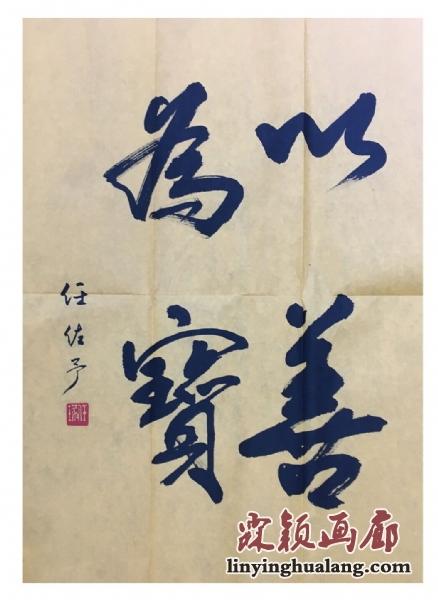 以善
為寶
任佐予
霖颖画廊
linyinghualang.com